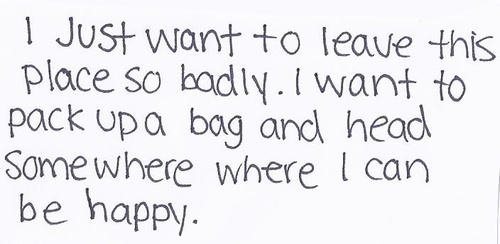 I Just want to leave this
place so badly. I want to
pack up a bag and head
Somewhere where I can
be happy.